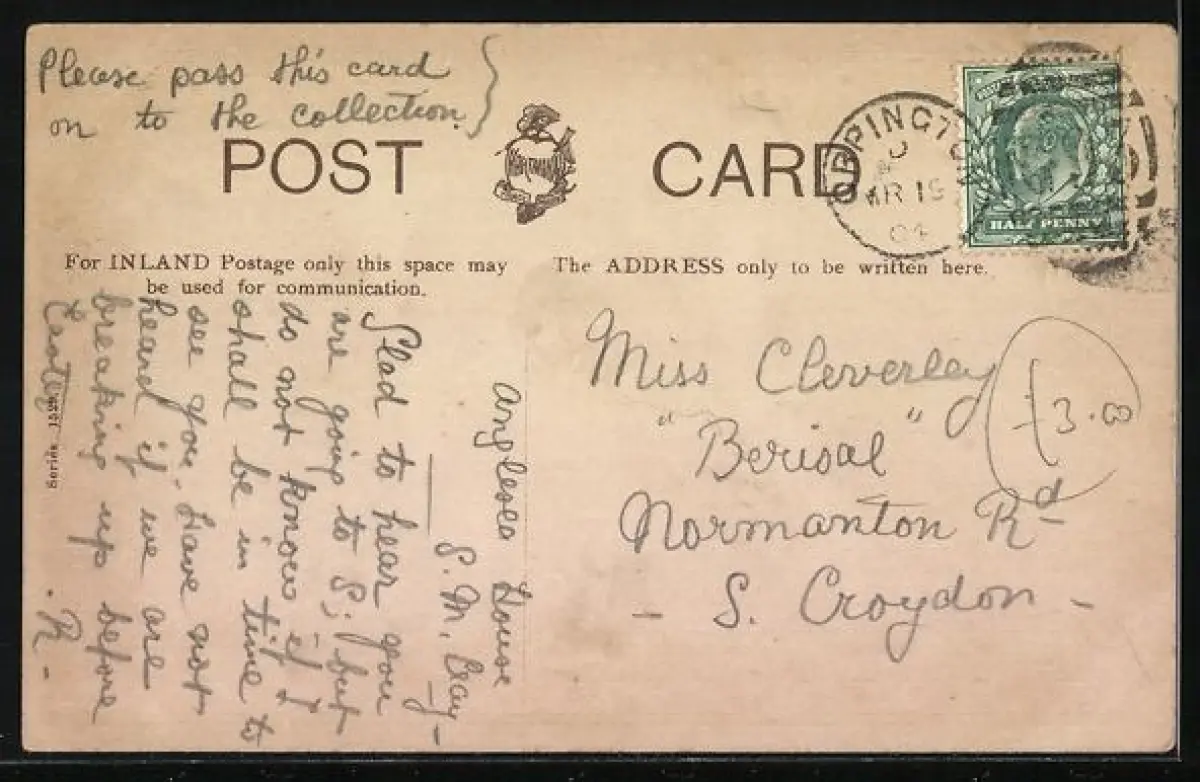 Please pass this card
on to the collection.
POST CARD
ORPINGTO
AR 19
04
HALF PENNY
For INLAND Postage only this space may
be used for communication.
The ADDRESS only to be written here.
Anglesea House
S. M. Cray
Glad to hear you
are going to S; but
do not know if I
shall be in time to
see you. Have not
heard if we are
breaking up before
Easter
. R -
Series 1529
Miss Cleverley
"Berisal"
Normanton Rd
- S. Croydon -
£3.00